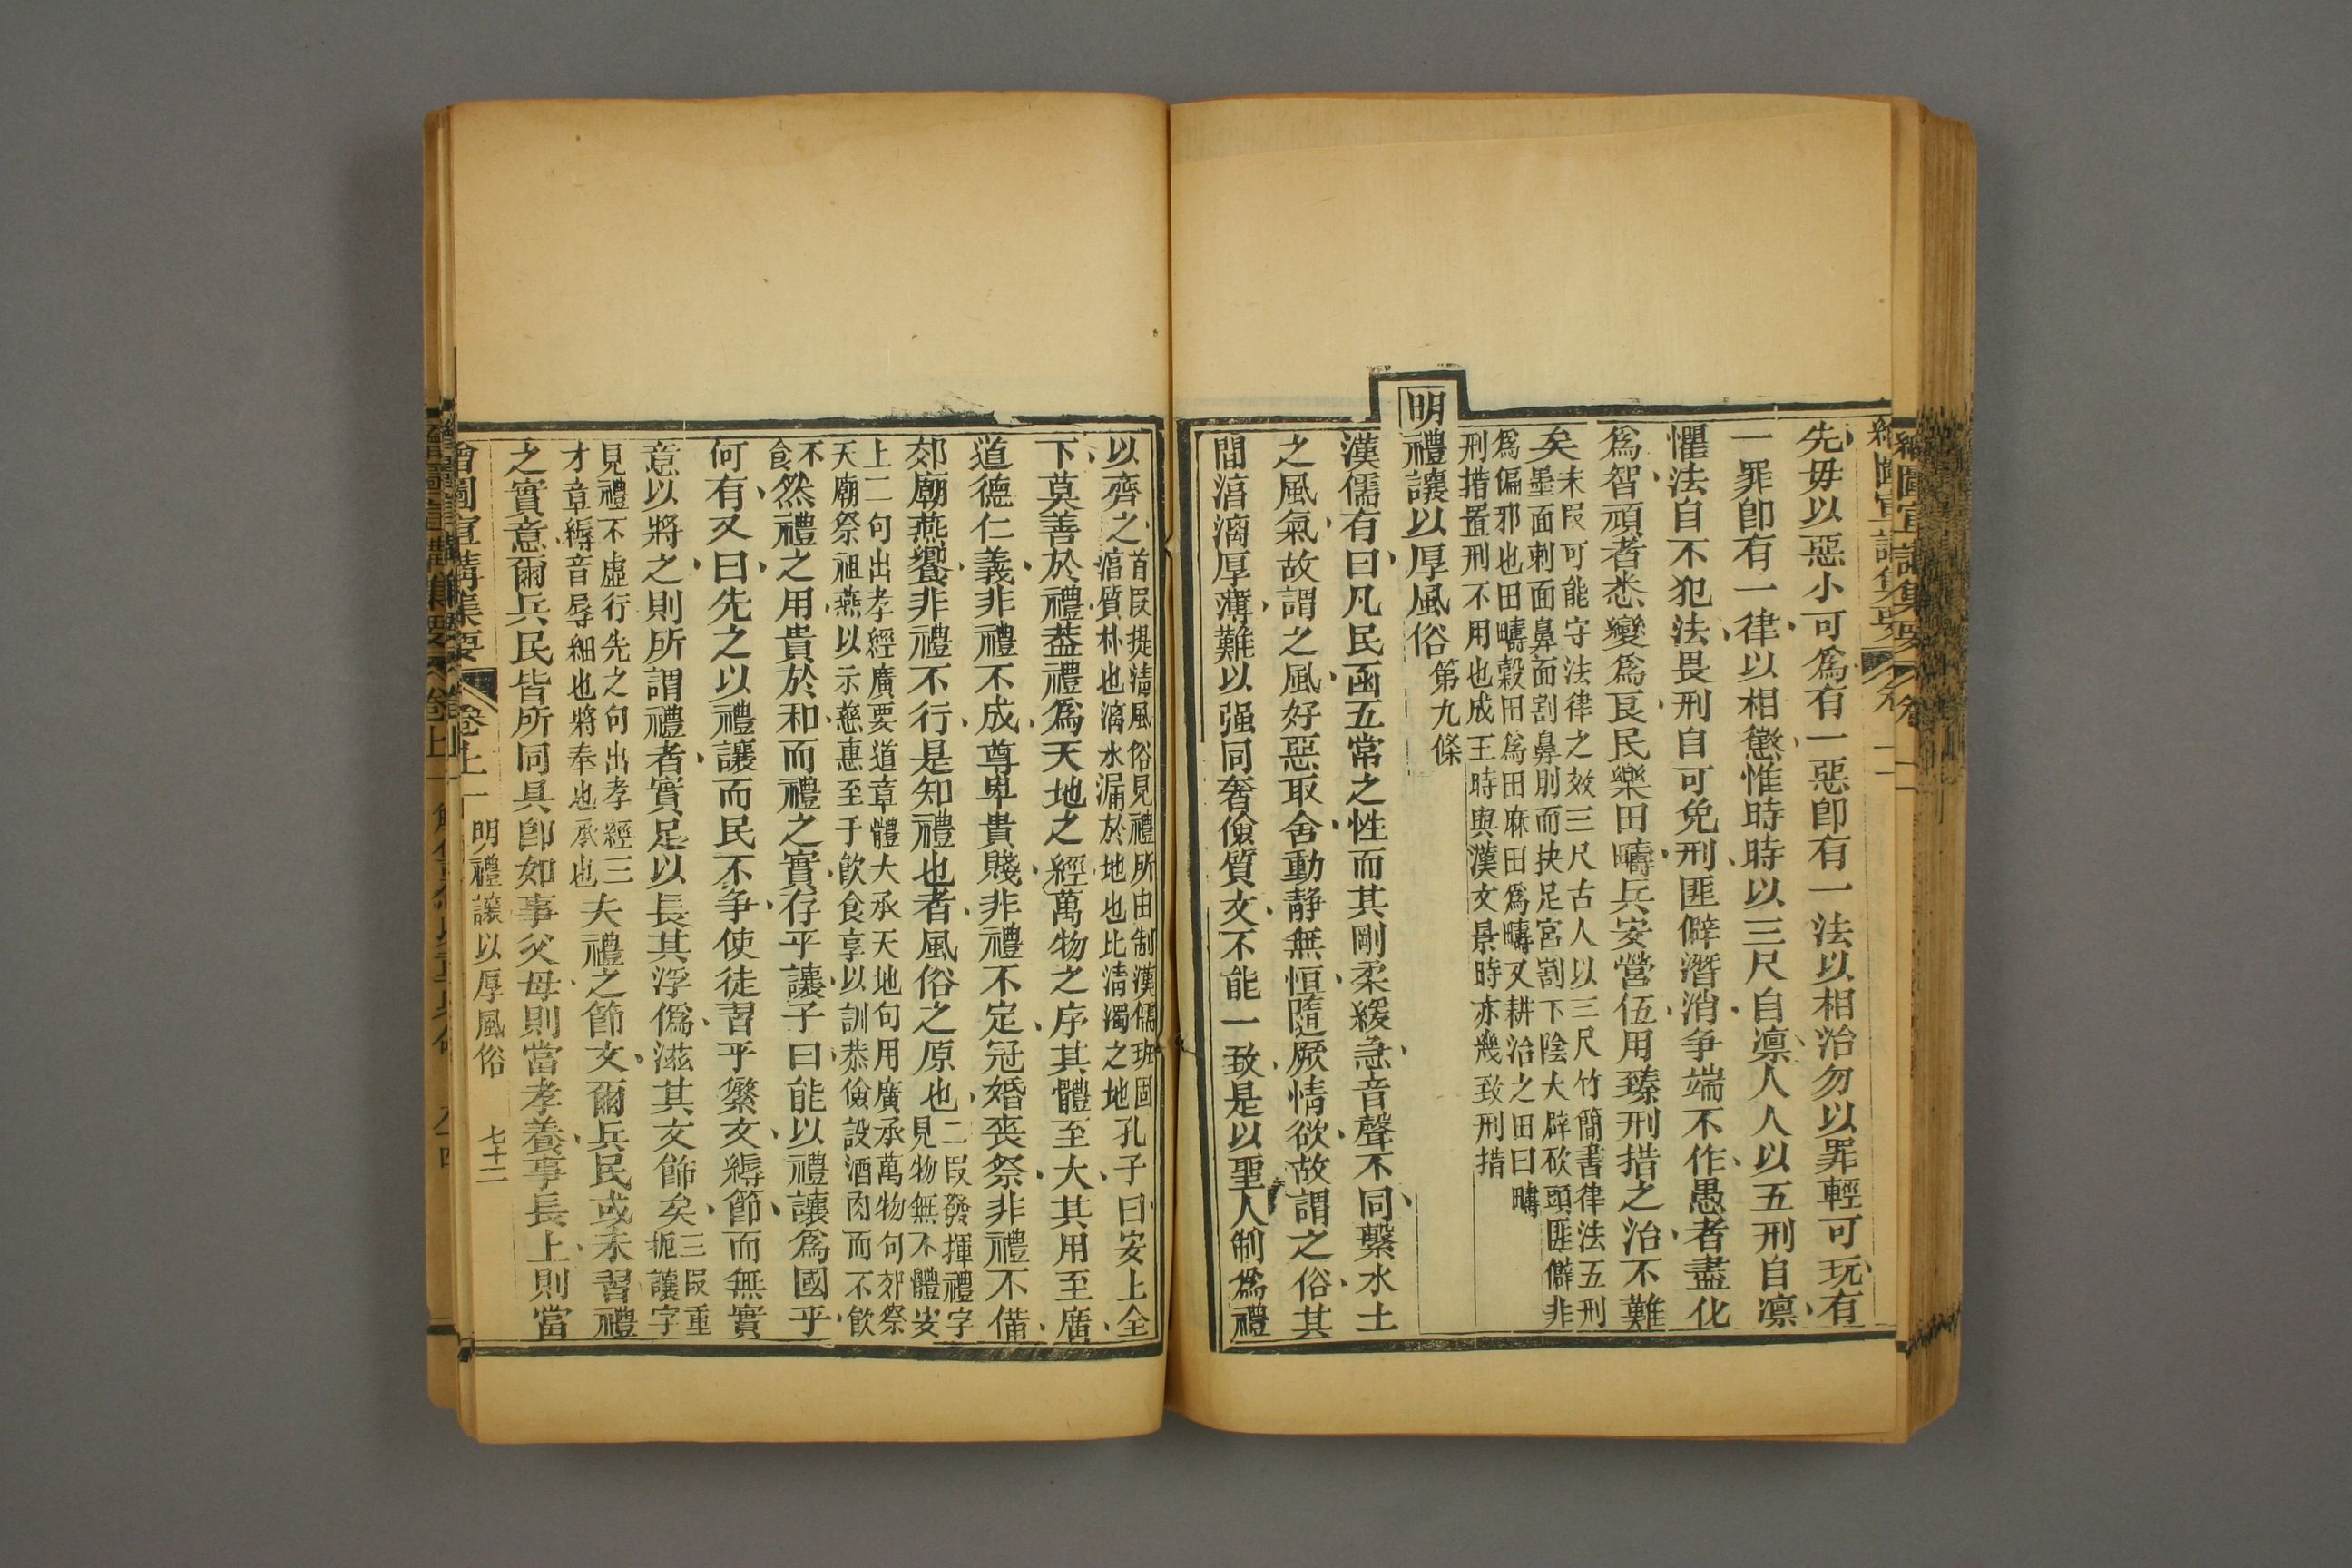 先毋以惡小可爲有一惡卽有一法以相治勿以罪輕可玩有
一罪卽有一律以相懲惟時時以三尺自凛人人以五刑自凛
懼法自不犯法畏刑自可免刑匪僻潛消争端不作愚者盡化
爲智頑者悉變爲良民樂田疇兵安營伍用臻刑措之治不難
矣
末叚可能守法律之效三尺古人以三尺竹簡書律法五刑
墨面刺面鼻面割鼻刖而抉足宮割下陰大辟砍頭匪僻非
爲偏邪也田疇穀田爲田麻田爲疇又耕治之田曰疇
刑措置刑不用也成王時與漢文景時亦幾致刑措
明禮讓以厚風俗
第九條
漢儒有曰凡民函五常之性而其剛柔緩急音聲不同繫水土
之風氣故謂之風好惡取舍動靜無恒隨厥情欲故謂之俗其
間淯漓厚薄難以强同奢儉質文不能一致是以聖人制爲禮
以齊之
首叚提淸風俗見禮所由制漢儒班固
淯質朴也漓水漏於地也比淸濁之地
孔子曰安上全
下莫善於禮葢禮爲天地之經萬物之序其體至大其用至廣
道德仁義非禮不成尊卑貴賤非禮不定冠婚喪祭非禮不備
郊廟燕饗非禮不行是知禮也者風俗之原也
二叚發揮禮字
見物無不體妛
上二句出孝經廣要道章體大承天地句用廣承萬物句郊祭
天廟祭祖燕以示慈惠至于飮食享以訓恭儉設酒肉而不飮
不
食
然禮之用貴於和而禮之實存乎讓子曰能以禮讓爲國乎
何有又曰先之以禮讓而民不争使徒習乎繁文縟節而無實
意以將之則所謂禮者實足以長其浮僞滋其文飾矣
三叚重
扼讓字
見禮不虛行先之句出孝經三
才章縟音辱細也將奉也承也
夫禮之節文爾兵民或未習禮
之實意爾兵民皆所同具卽如事父母則當孝養事長上則當
繪圖宣講集要
卷上一
明禮讓以厚風俗
七十二